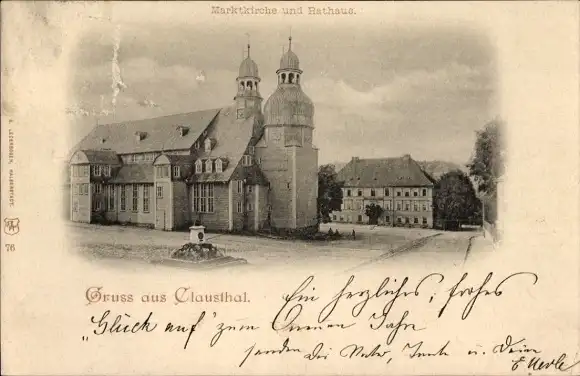 Marktkirche und Rathaus.
R. LEDERBOGEN, HALBERSTADT.
76
Gruss aus Clausthal.
Ein herzliches, frohes
"Glück auf" zum Neuen Jahr
senden Dir Vater, Tante u. Deine